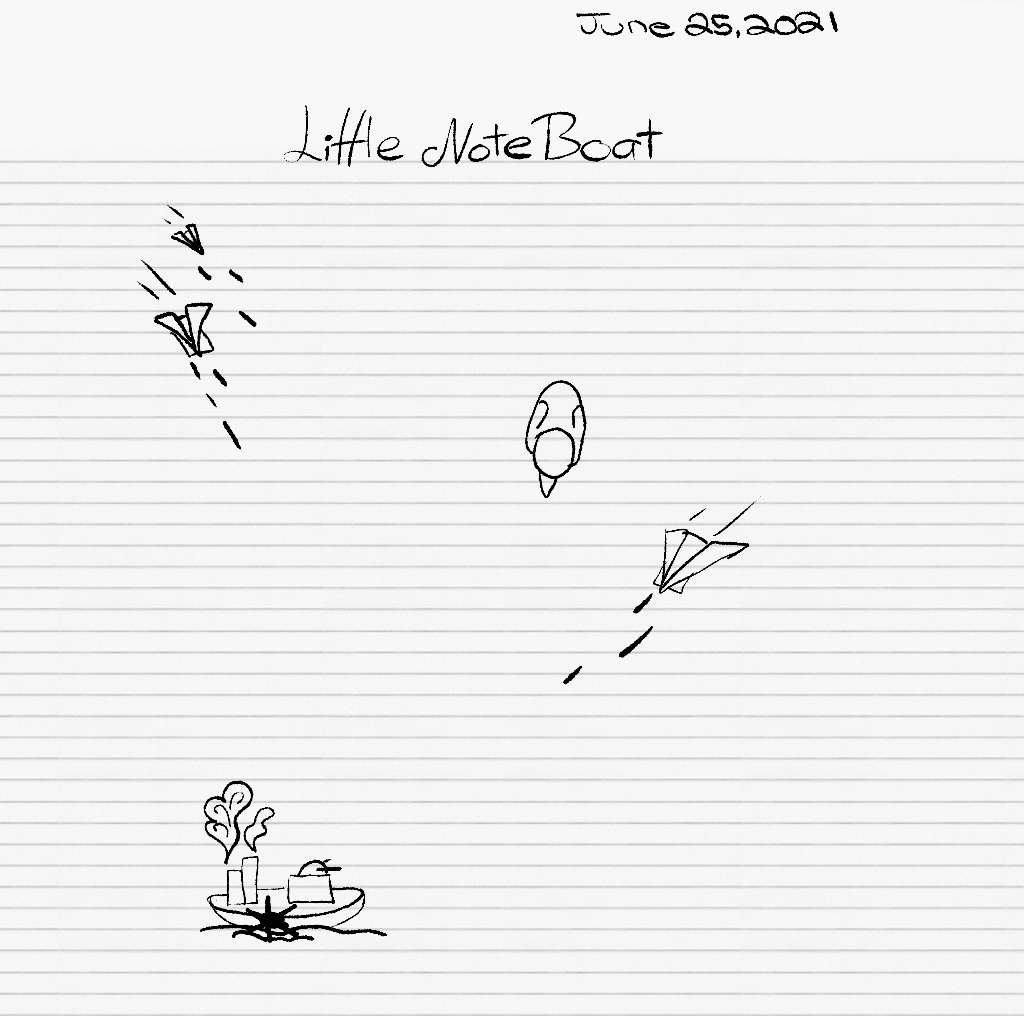 June 25, 2021
Little NoteBoat